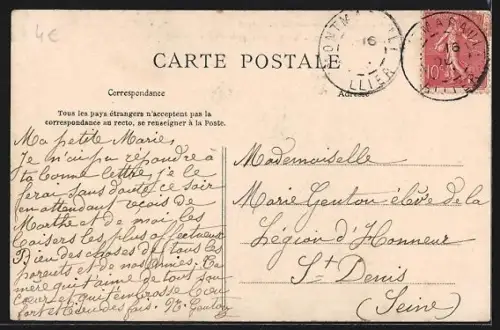 4€
CARTE POSTALE
Correspondance
Tous les pays étrangers n'acceptent pas la
correspondance au recto, se renseigner à la Poste.
Adresse
16
LLIER
16
10
Ma petite Marie,
Je n'ai pu répondre à
ta bonne lettre, je le
ferai sans doute ce soir
en attendant reçois de
Marthe et de moi les
baisers les plus affectueux
Bien des choses de tous les
parents et de nos amies. Ta
mère qui t'aime de tout son
cœur et qui t'embrasse bien
fort et bien des fois.
Mademoiselle
Marie Genton élève de la
Légion d'Honneur
St Denis
(Seine)